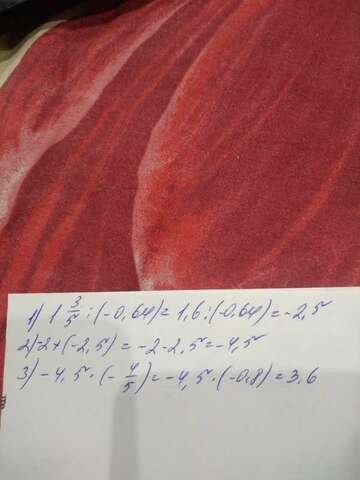 1) 1 3/5 : (-0,64) = 1,6 : (-0.64) = -2,5
2) -2 + (-2,5) = -2 - 2,5 = -4,5
3) -4,5 · (-4/5) = -4,5 · (-0,8) = 3,6